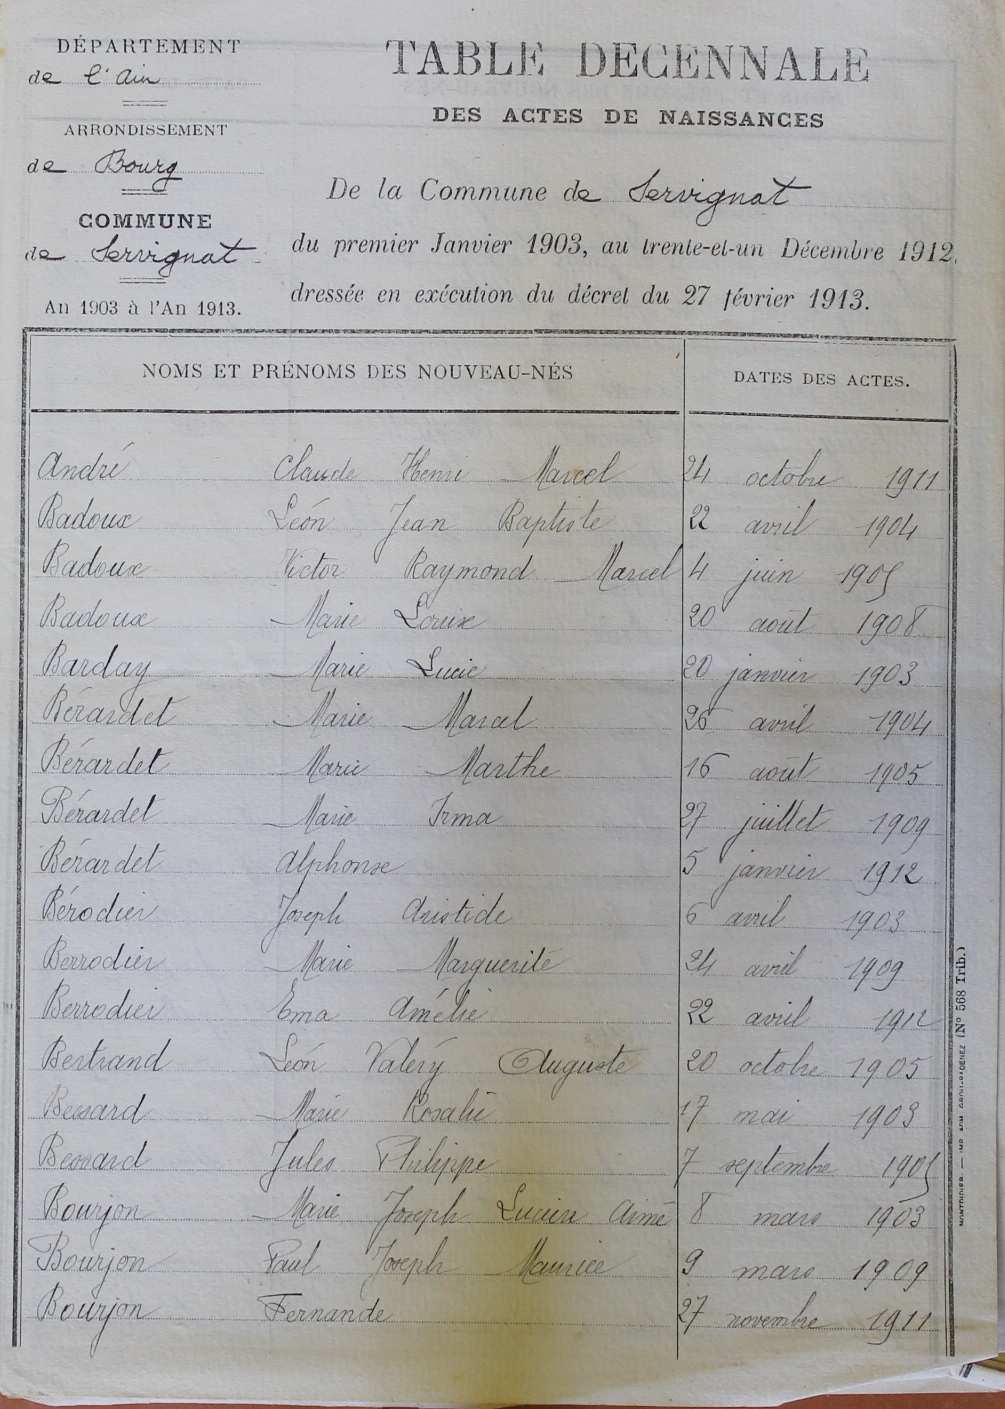 DÉPARTEMENT
de l'Ain
ARRONDISSEMENT
de Bourg
COMMUNE
de Servignat
An 1903 à l'An 1913.
TABLE DECENNALE
DES ACTES DE NAISSANCES
De la Commune de Servignat
du premier Janvier 1903, au trente-et-un Décembre 1912,
dressée en exécution du décret du 27 février 1913.
NOMS ET PRÉNOMS DES NOUVEAU-NÉS DATES DES ACTES.
André Claude Henri Marcel 24 octobre 1911
Badoux Léon Jean Baptiste 22 avril 1904
Badoux Victor Raymond Marcel 4 juin 1905
Badoux Marie Louise 20 août 1908
Barday Marie Lucie 20 janvier 1903
Bérardet Marie Marcel 26 avril 1904
Bérardet Marie Marthe 16 août 1905
Bérardet Marie Irma 27 juillet 1909
Bérardet Alphonse 5 janvier 1912
Bérodier Joseph Aristide 6 avril 1903
Berrodier Marie Marguerite 24 avril 1909
Berrodier Ema Amélie 22 avril 1912
Bertrand Léon Valéry Auguste 20 octobre 1905
Bessard Marie Rosalie 17 mai 1903
Bessard Jules Philippe 7 septembre 1905
Bourjon Marie Joseph Lucien Aimé 8 mars 1903
Bourjon Paul Joseph Maurice 9 mars 1909
Bourjon Fernande 27 novembre 1911
(N° 568 Trib.)